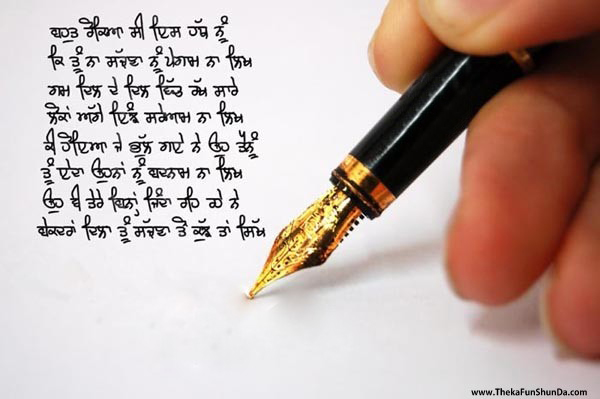 ਬਹੁਤ ਰੋਕਿਆ ਸੀ ਇਸ ਹੱਥ ਨੂੰ
ਕਿ ਤੂੰ ਨਾ ਸੱਜਣਾ ਨੂੰ ਪੈਗਾਮ ਨਾ ਲਿਖ
ਗਮ ਦਿਲ ਦੇ ਦਿਲ ਵਿੱਚ ਰੱਖ ਸਾਰੇ
ਲੋਕਾਂ ਅੱਗੇ ਇੰਝ ਸਰੇਆਮ ਨਾ ਲਿਖ
ਕੀ ਹੋਇਆ ਜੇ ਭੁੱਲ ਗਏ ਨੇ ਉਹ ਤੈਨੂੰ
ਤੂੰ ਏਦਾ ਉਹਨਾਂ ਨੂੰ ਬਦਨਾਮ ਨਾ ਲਿਖ
ਉਹ ਵੀ ਤੇਰੇ ਬਿਨਾਂ ਜਿੰਦਾ ਰਹਿ ਰਹੇ ਨੇ
ਬੇਕਦਰਾਂ ਦਿਲਾ ਤੂੰ ਸੱਜਣਾ ਤੋ ਕੁੱਝ ਤਾਂ ਸਿੱਖ
www.ThekaFunShunDa.com